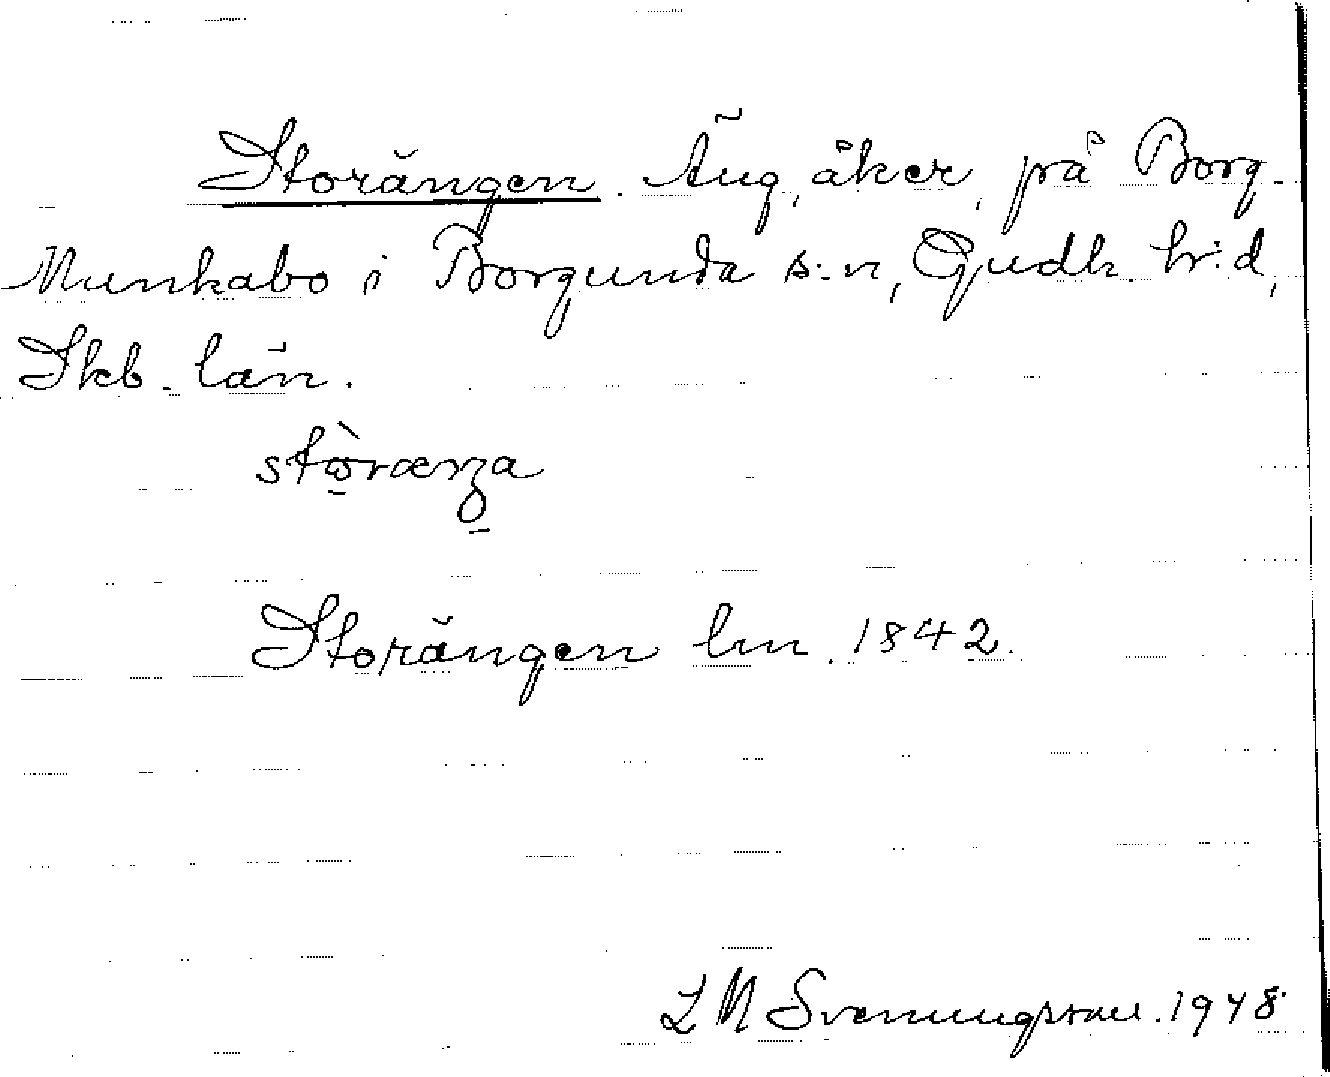 Storängen. Äng, åker, på Borg-
Munkabo i Borgunda s:n, Gudh. hr:d,
Skb. län.
stòræŋa
Storängen lm. 1842.
L M Svenungsson. 1948